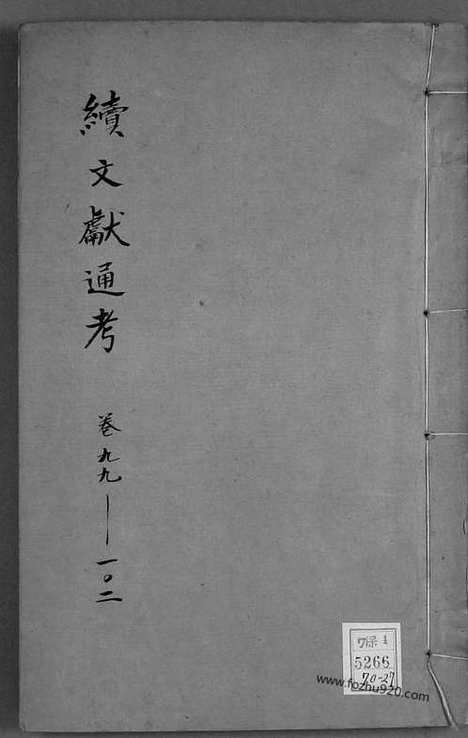 續文獻通考
卷九九——一〇二
5266
70-27
www.fozhu920.com